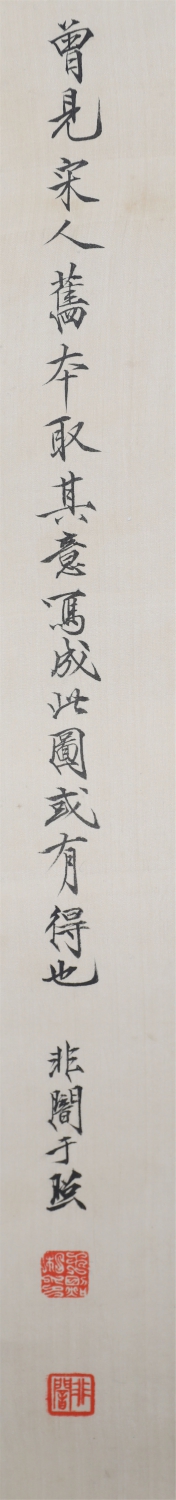 曾見宋人舊本取其意寫成此圖或有得也 非闇于照
非闇